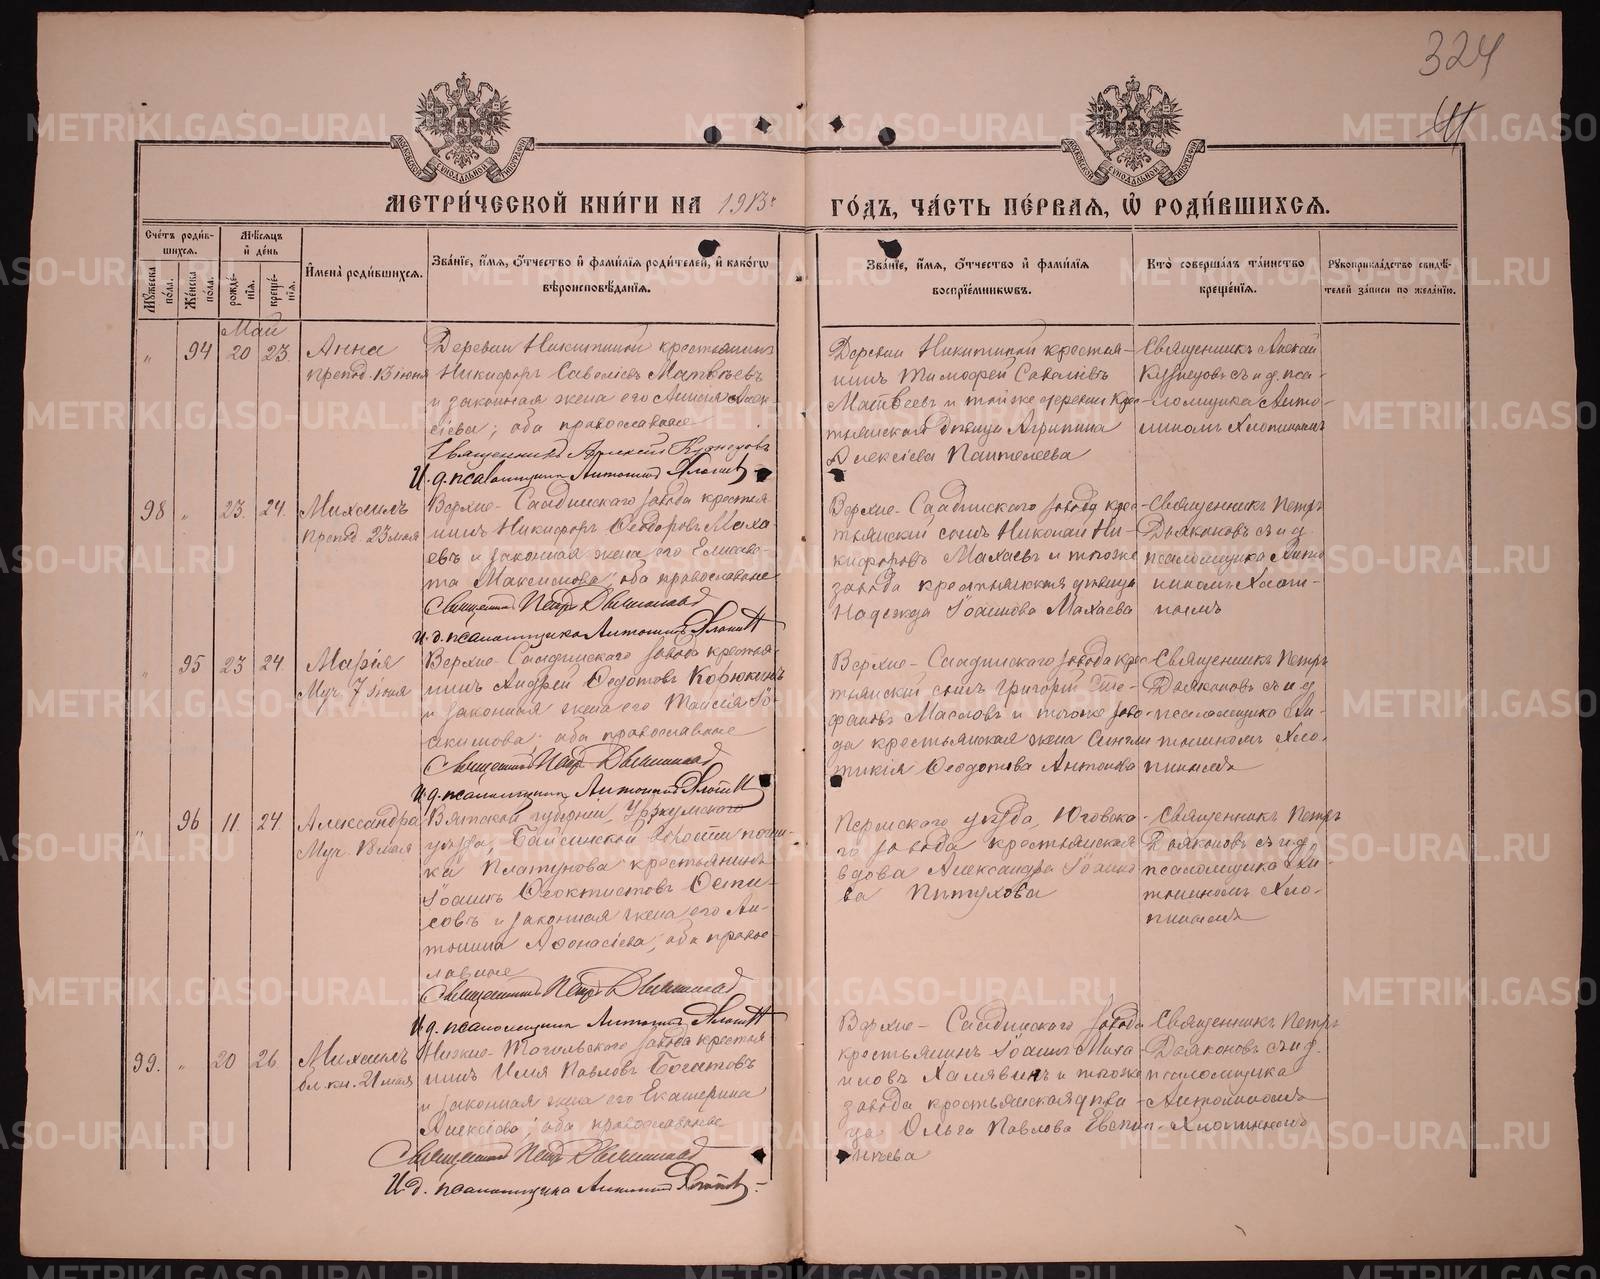 324
МЕТРИ́ЧЕСКОЙ КНИ́ГИ НА 1913 г. ГО́ДЪ, ЧА́СТЬ ПЕ́РВАЯ, Ѡ РОДИ́ВШИХСЯ.
Сче́тъ роди́вшихся.
Мꙋ́жеска по́ла.
Же́нска по́ла.
Мѣ́сяцъ и҆ де́нь
рожде́нїя.
креще́нїя.
И҆мена̀ роди́вшихся.
Зва́нїе, и҆́мя, ѻ҆́тчество и҆ фами́лїя роди́телей, и҆ како́гѡ
вѣроисповѣ́данїя.
Зва́нїе, и҆́мя, ѻ҆́тчество и҆ фами́лїя
воспрїе́мниковъ.
Кто̀ соверша́лъ та́инство
креще́нїя.
Рꙋкоприкла́дство свидѣ́-
телей за́писи по жела́нїю.
Май
„ 94 20 23.
Анна
препод. 13 іюня
Деревни Никитиной крестьянинъ
Никифоръ Савеліевъ Матвѣевъ
и законная жена его Анисія Алек-
сіева; оба православные
Священникъ Алексій Кузнецовъ
И. д. псаломщика Антонинъ Хлопинъ
Деревни Никитиной крестья-
нинъ Тимофей Савеліевъ
Матвѣевъ и той же деревни крес-
тьянская дѣвица Агрипина
Алексіева Пантелеева
Священникъ Алексій
Кузнецовъ съ и. д. пса-
ломщика Анто-
ниномъ Хлопинымъ
98 „ 23. 24.
Михаилъ
препод. 23 мая
Верхне-Салдинскаго завода крестья-
нинъ Никифоръ Ѳеодоровъ Маха-
евъ и законная жена его Елисаве-
та Максимова; оба православные
Священникъ Петръ Дьяконовъ
И. д. псаломщика Антонинъ Хлопинъ
Верхне-Салдинскаго завода крес-
тьянскій сынъ Николай Ни-
кифоровъ Махаевъ и тогоже
завода крестьянская дѣвица
Надежда Іоаннова Махаева
Священникъ Петръ
Дьяконовъ съ и. д.
псаломщика Анто-
ниномъ Хлопи-
нымъ
„ 95 23 24.
Марія
Муч. 7 іюня
Верхне-Салдинскаго завода крестья-
нинъ Андрей Ѳедотовъ Корюкинъ
и законная жена его Таисія Іо-
акимова; оба православные
Священникъ Петръ Дьяконовъ
И. д. псаломщика Антонинъ Хлопинъ
Верхне-Салдинскаго завода крес-
тьянскій сынъ Григорій Сте-
фановъ Масловъ и тогоже заво-
да крестьянская жена Синкли-
тикія Ѳеодотова Антонова
Священникъ Петръ
Дьяконовъ съ и. д.
псаломщика Ан-
тониномъ Хло-
пинымъ
„ 96 11. 24.
Александра
Муч. 18 мая
Вятской губерніи, Уржумскаго
уѣзда, Байсинской волости почин-
ка Платунова крестьянинъ
Іоаннъ Ѳеоктистовъ
и законная жена его Ан-
тонина Аѳонасіева; оба право-
славные
Священникъ Петръ Дьяконовъ
И. д. псаломщика Антонинъ Хлопинъ
Пермскаго уѣзда, Юговска-
го завода крестьянская
вдова Александра Іоанно-
ва Пѣтухова
Священникъ Петръ
Дьяконовъ съ и. д.
псаломщика Ан-
тониномъ Хло-
пинымъ
99. „ 20 26.
Михаилъ
бл. кн. 21 мая
Нижне-Тагильскаго завода крестья-
нинъ Илія Павловъ Богатовъ
и законная жена его Екатерина
Алексіева; оба православные
Священникъ Петръ Дьяконовъ
И. д. псаломщика Антонинъ Хлопинъ
Верхне-Салдинскаго завода
крестьянинъ Іоаннъ Миха-
иловъ Халявинъ и тогоже
завода крестьянская дѣви-
ца Ольга Павлова
Священникъ Петръ
Дьяконовъ съ и. д.
псаломщика
Антониномъ
Хлопинымъ
METRIKI.GASO-URAL.RU